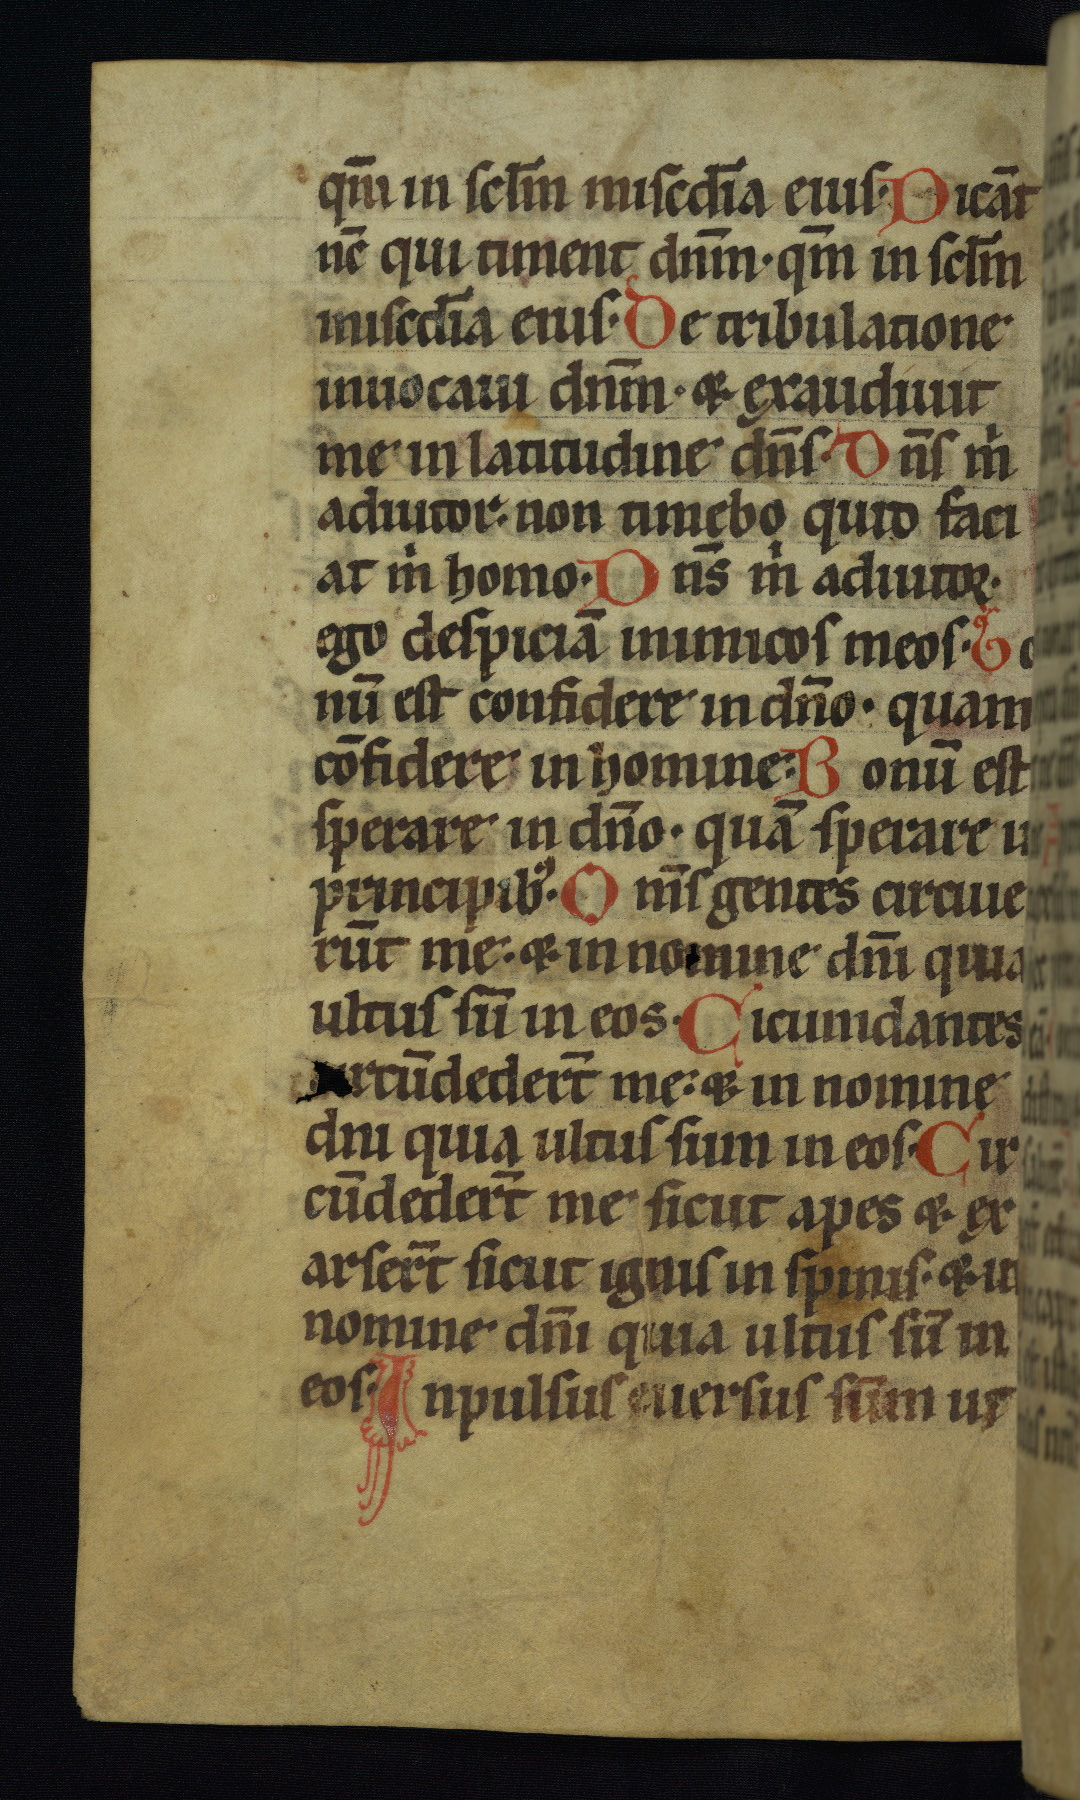 qm̄ in scl̄m miscdīa eius· Dicāt
nc̄ qui timent dnm̄· qm̄ in scl̄m
miscdīa eius· De tribulatione
inuocaui dnm̄· & exaudiuit
me in latitudine dn̄s· Dn̄s ṁ
adiutor· non timebo quid faci
at ṁ homo· Dn̄s ṁ adiutor·
ego despiciā inimicos meos· Bo
nū est confidere in dn̄o· quam
cōfidere in homine· Bonū est
sperare in dn̄o· quā sperare in
principib᷒· Om̄s gentes circuie
rūt me· & in nomine dnī quia
ultus sū in eos· Cicumdantes
circūdedert̄ me· & in nomine
dni quia ultus sum in eos· Cir
cūdedert̄ me sicut apes & ex
arsert̄ sicut ignis in spinis· & in
nomine dnī quia ultus sū in
eos· Inpulsus euersus sum ut